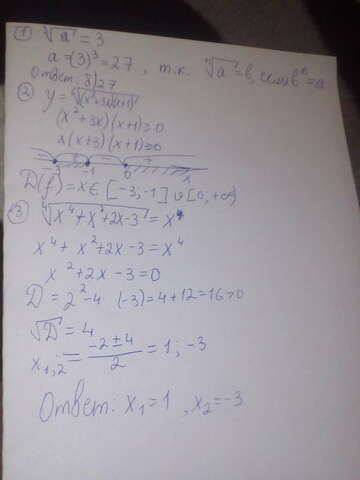 ① ∛a = 3
a = (3)³ = 27 , т.к. ⁿ√a = b, если bⁿ = a
Ответ: б) 27
② y = ⁶√((x²+3x)(x+1))
(x²+3x)(x+1) ≥ 0
x(x+3)(x+1) ≥ 0
- -3 + -1 - 0 + x
D(f) = x ∈ [-3; -1] ∪ [0; +∞)
③ ⁴√(x⁴+x²+2x-3) = x
x⁴ + x²+2x-3 = x⁴
x²+2x-3=0
D = 2²-4 (-3) = 4+12=16>0
√D = 4
x₁,₂ = (-2±4)/2 = 1; -3
Ответ: x₁=1 , x₂=-3